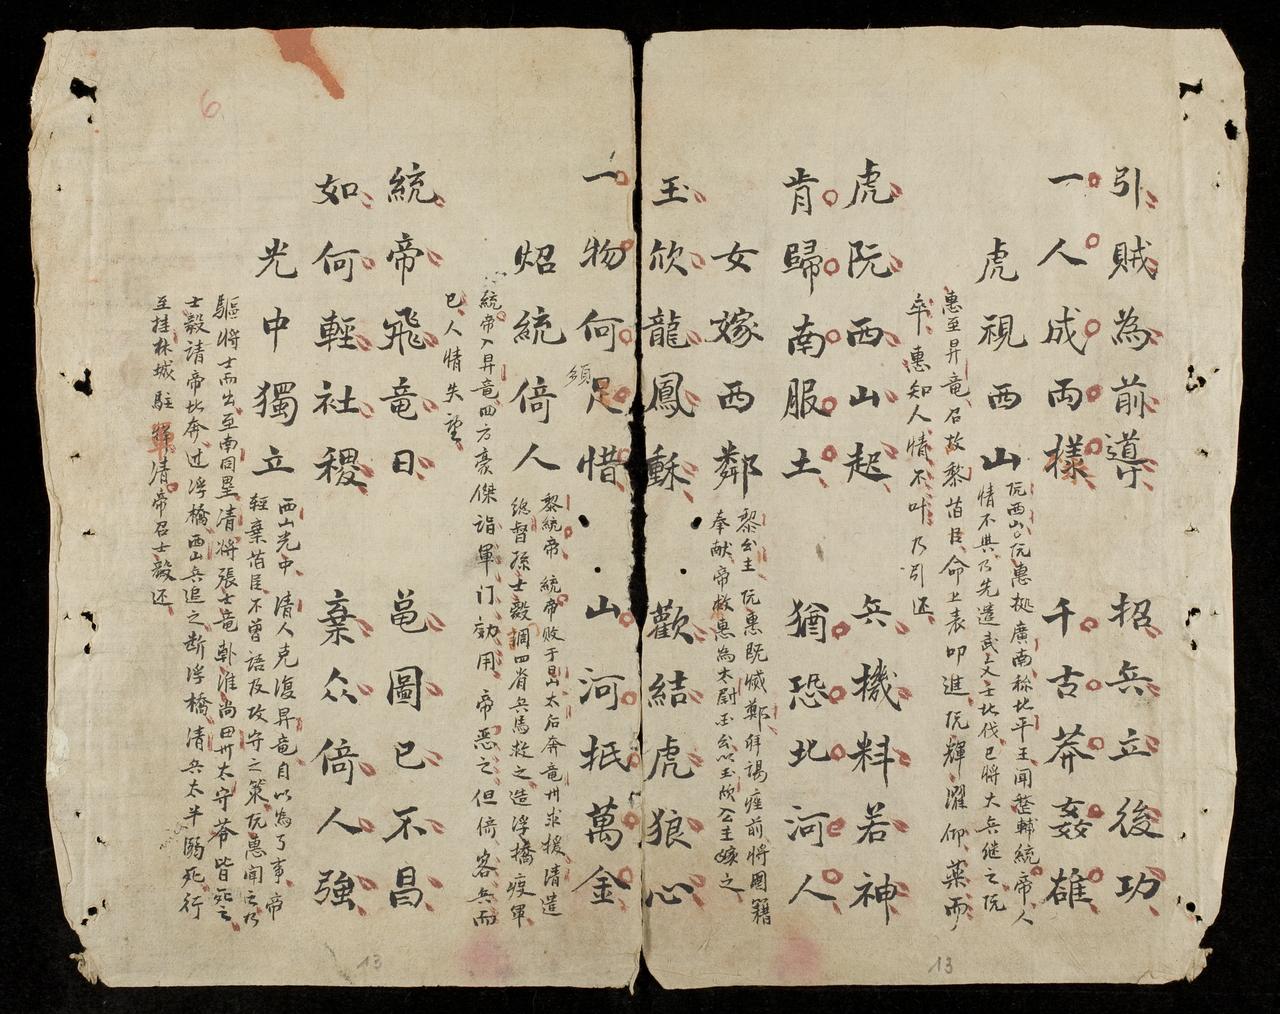 引賊為前導 招兵立後功
一人成両樣 千古莽姦雄
虎視西山
阮西山。阮惠拠廣南称北平王聞整輔統帝人
情不異乃先遣武文士北伐已將大兵继之阮
惠至昇竜召故黎旧臣命上表叩進阮輝濯仰薬而
卒惠知人情不叶乃引还
虎阮西山起 兵機料若神
肯歸南服土 猶恐北河人
女嫁西鄰
黎公主 阮惠既滅鄭拜謁痊前將圖籍
奉献帝敕惠為太尉玉公以玉欣公主嫁之
玉欣龍鳳穌 歡結虎狼心
一物何足惜 山河抵萬金
須
炤統倚人
黎統帝 統帝敗于昌山太后奔竜州求援清遣
總督孫士毅調四省兵馬救之造浮橋度軍
統帝入昇竜四方豪傑詣軍门効用帝悪之但倚客兵而
已人情失望
統帝飛竜日 邕圖已不昌
如何輕社稷 棄众倚人強
光中獨立
西山光中 清人克復昇竜自以為了事帝
轻棄旧臣不曽語及攻守之策阮惠聞之乃
驅將士而出至南同壘清將張士竜執淮尚田州太守苓皆死之
士毅請帝北奔过浮橋西山兵追之断浮橋清兵太半溺死行
至桂林城駐蹕清帝召士毅还
6
13
13